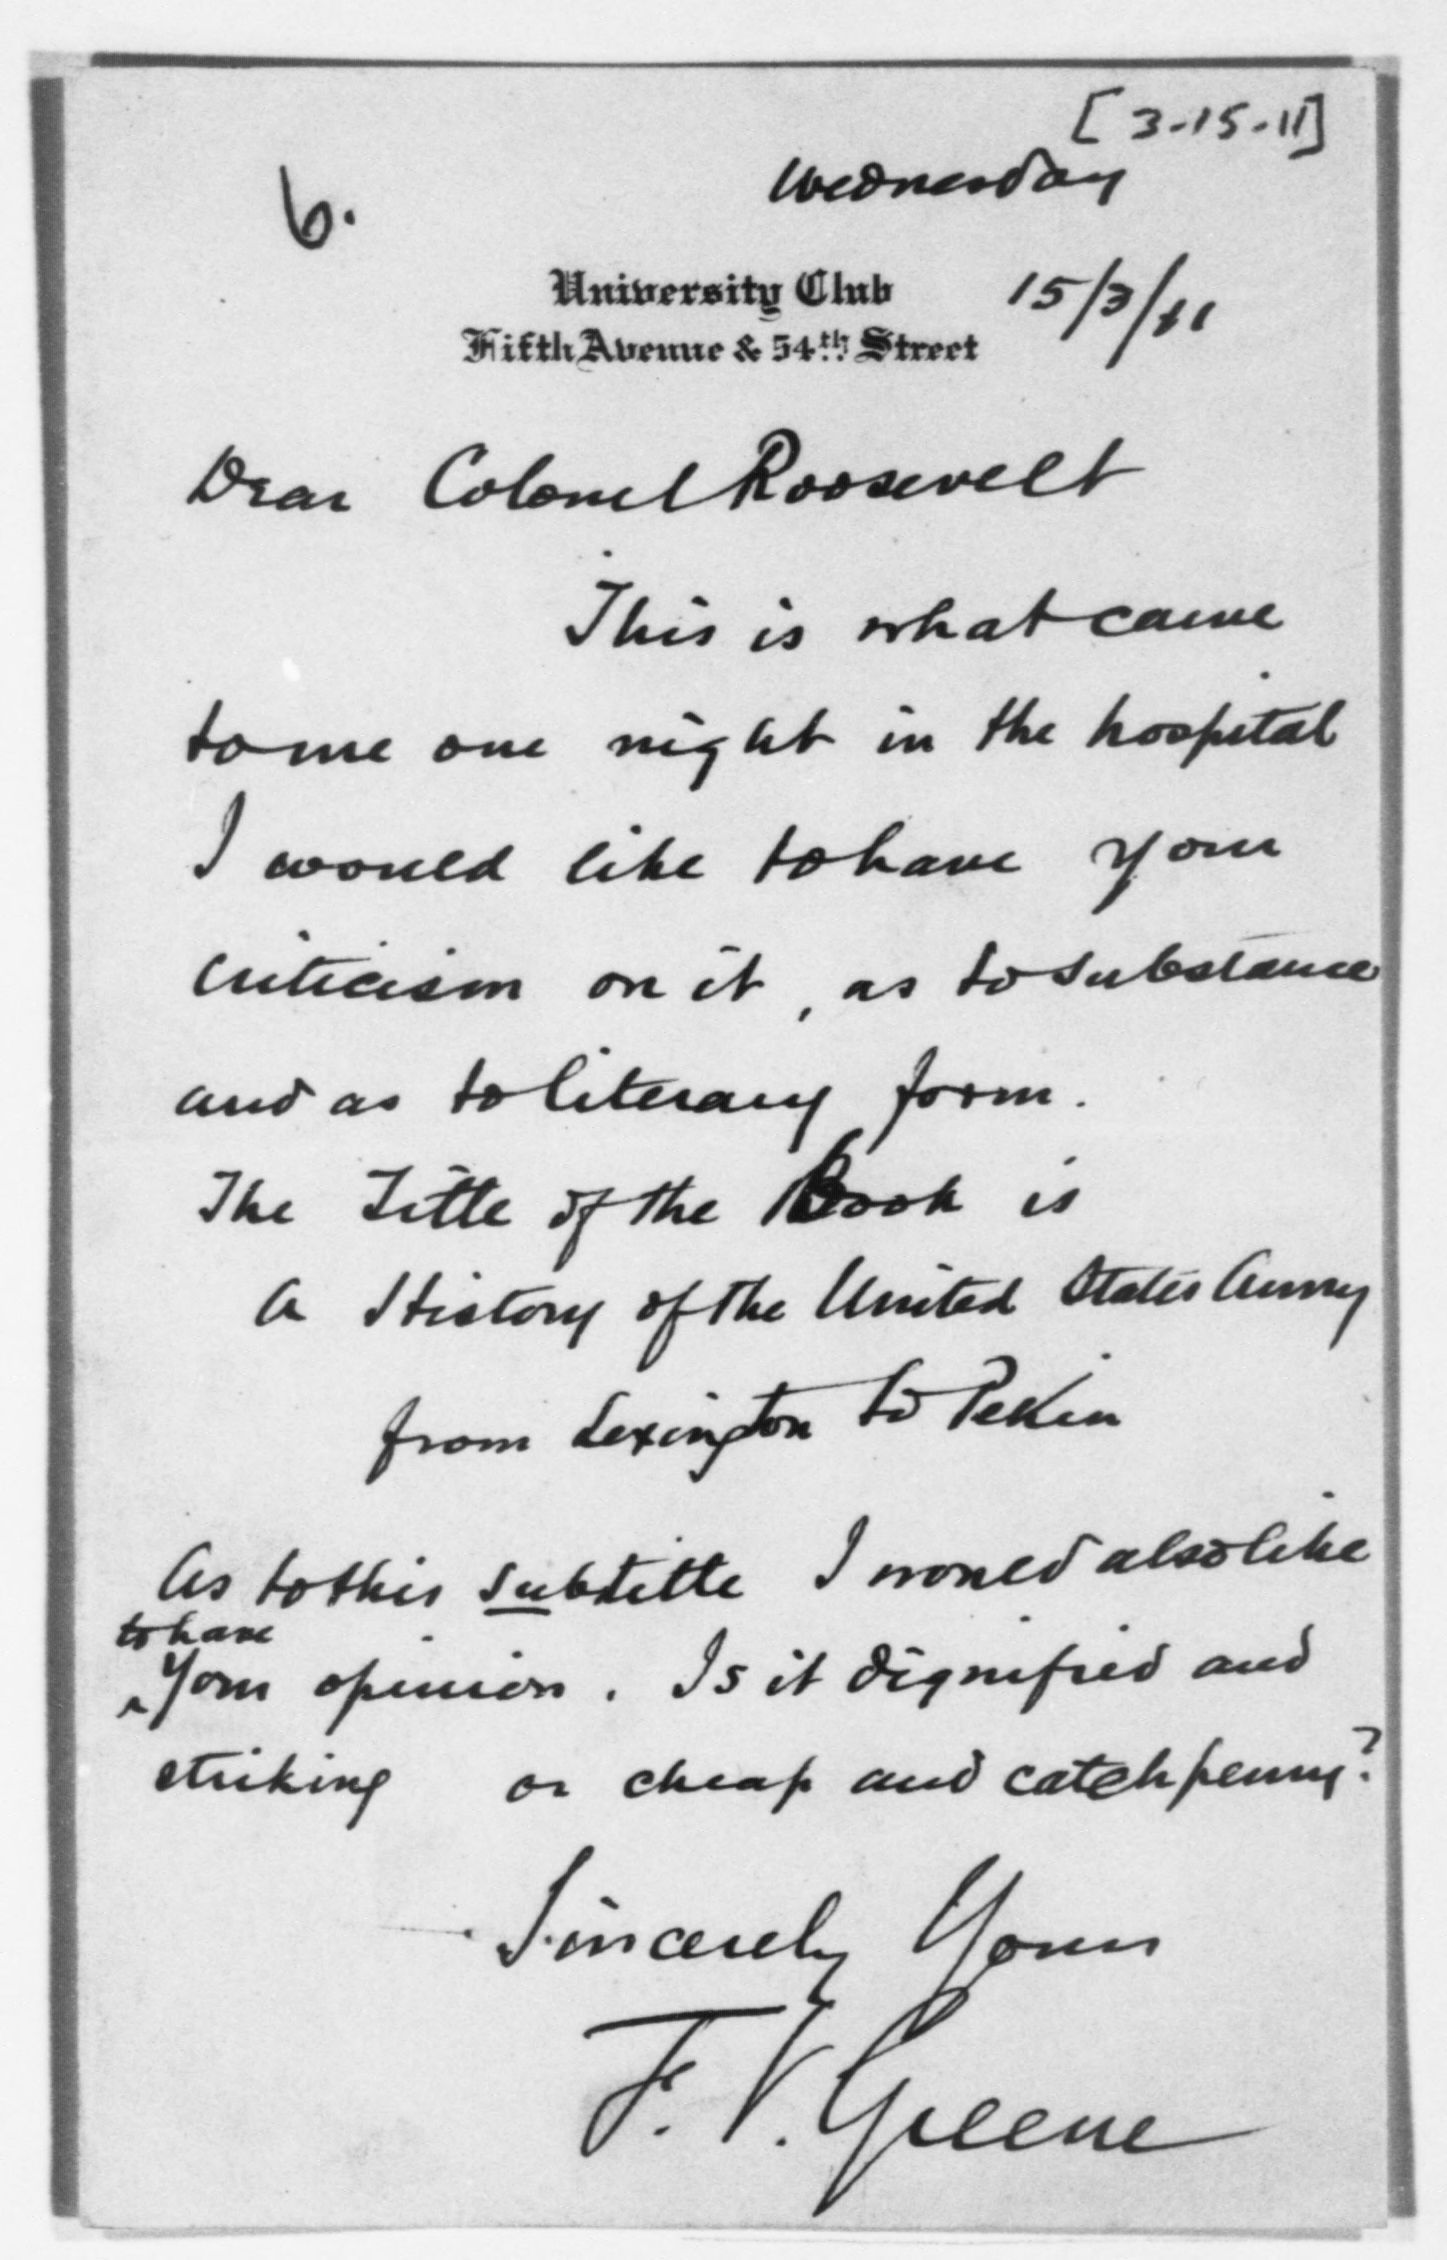 [3-15-11]
Wednesday
6.
University Club
15/3/11
Fifth Avenue & 54th Street
Dear Colonel Roosevelt
This is what came
to me one night in the hospital
I would like to have your
criticism on it, as to substance
and as to literary form.
The Title of the Book is
A History of the United States Army
from Lexington to Pekin
As to this subtitle I would also like
to have
^ your opinion. Is it dignified and
striking or cheap and catchpenny?
Sincerely Yours
F. V. Greene